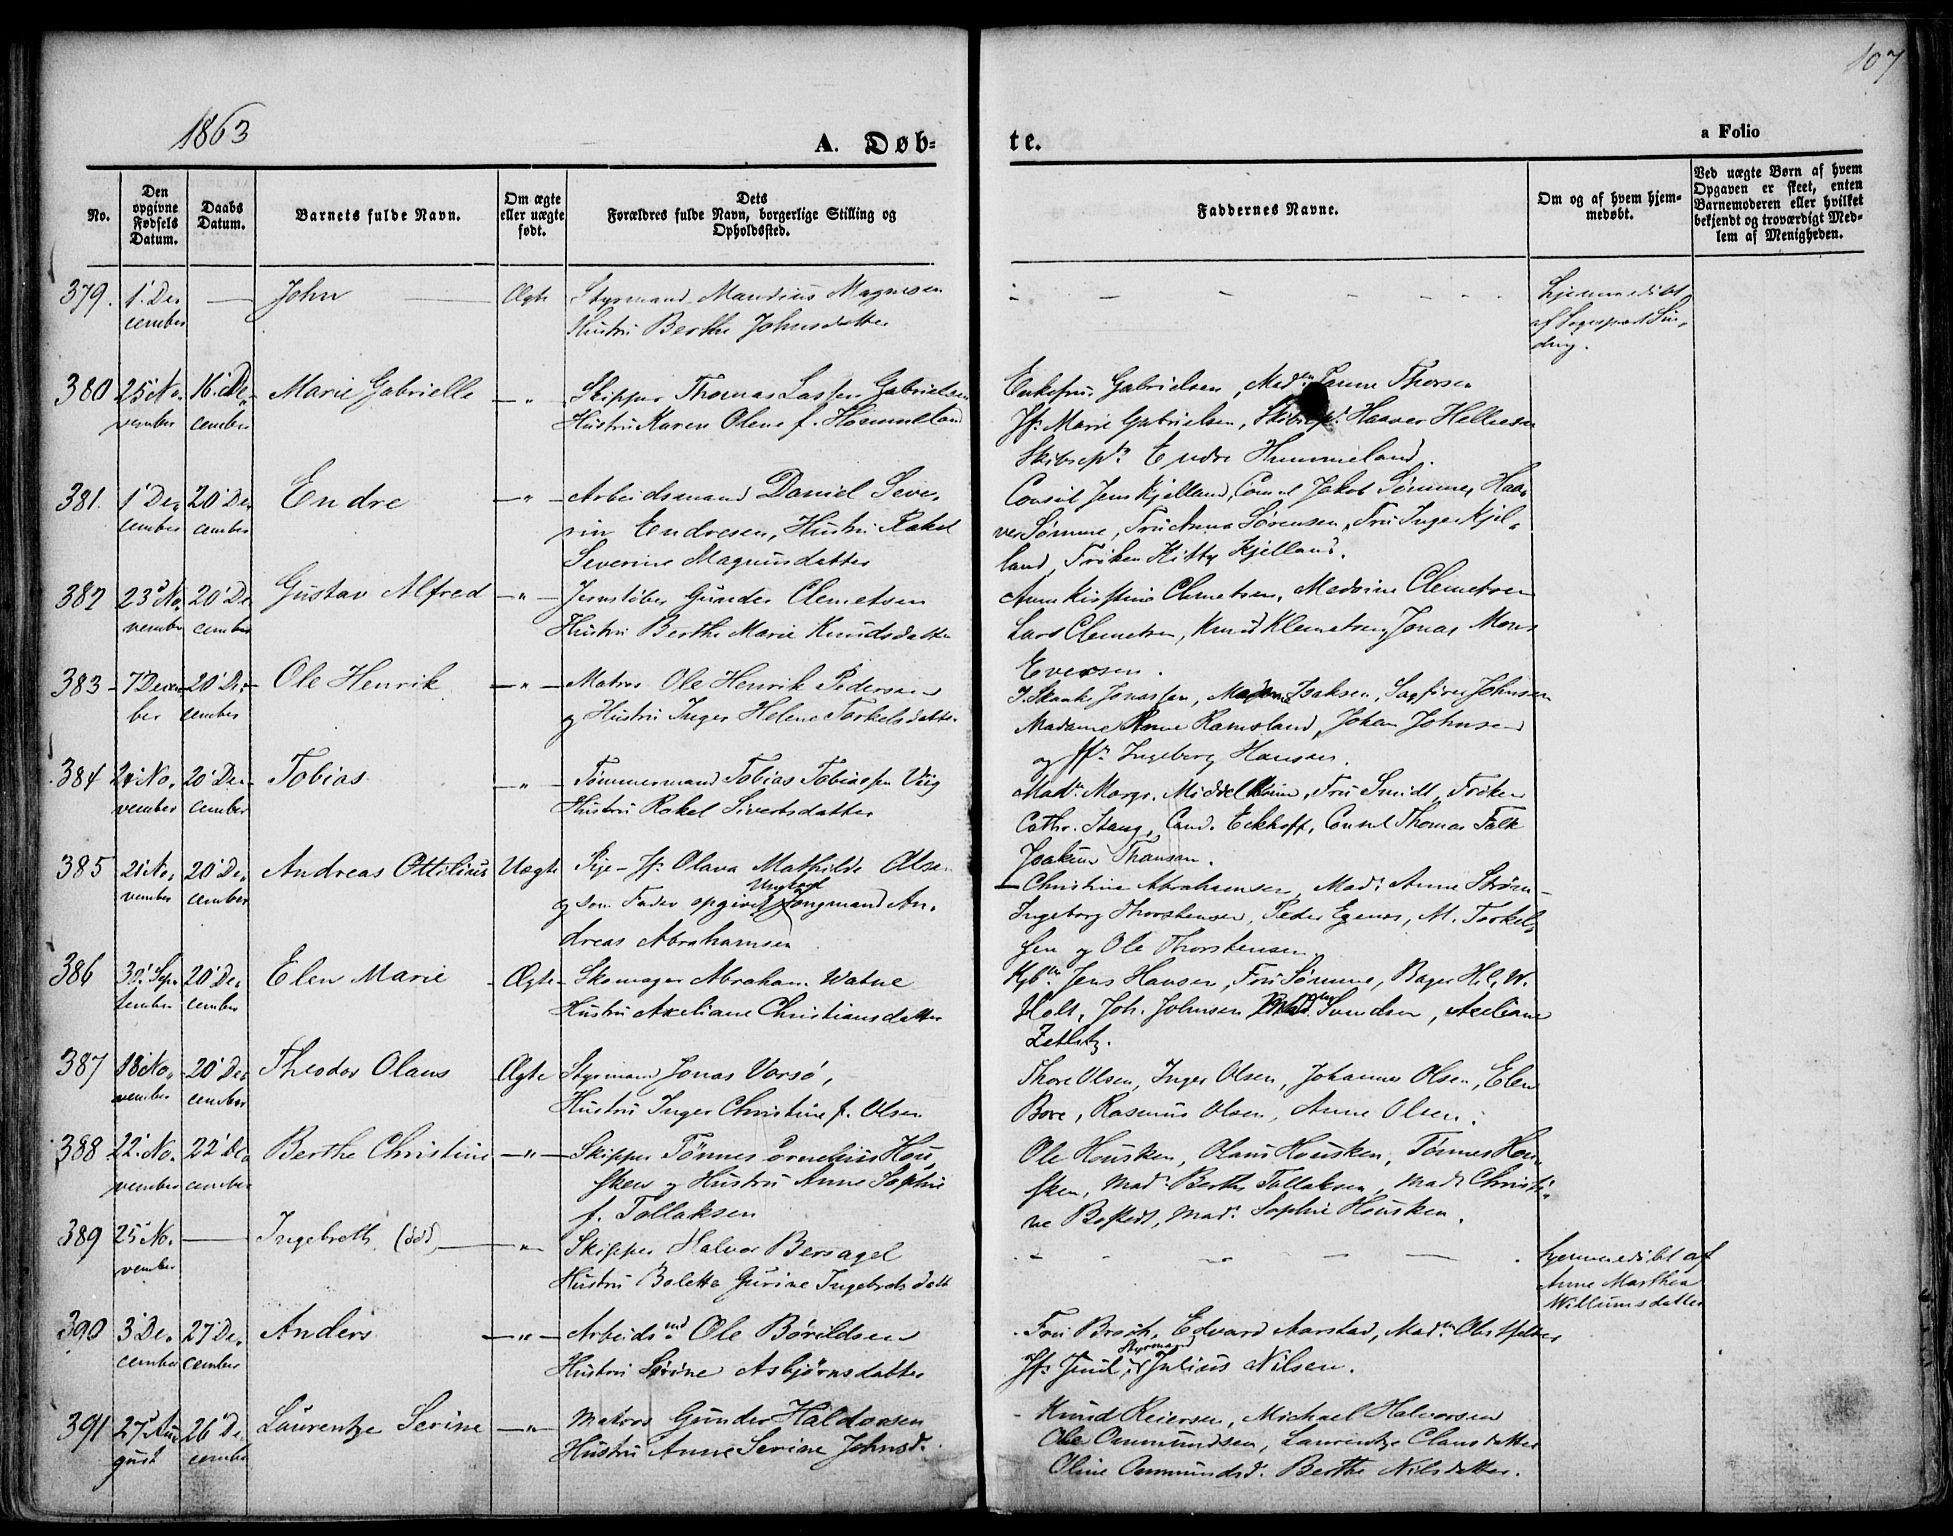 107
1863
A. Døb-
te.
a Folio
No.
Den opgivne Fødsels Datum.
Daabs Datum.
Barnets fulde Navn.
Om ægte eller uægte født.
Dets Forældres fulde Navn, borgerlige Stilling og Opholdssted.
Faddernes Navne.
Om og af hvem hjem-
medøbt.
Ved uægte Børn af hvem
Opgaven er skeet, enten
Barnemoderen eller hvilket
bekjendt og troværdigt Med-
lem af Menigheden.
379. 1' De- — John — Ægte Styrmand Maudius Magnesen
cember Hustru Berthe Johnsdatter
hjemmedöbt
af
380 25' No- 16' De- Marie Gabrielle — " — Skipper Thomas Lassen Gabrielsen
vember cember Hustru Karen Olene f. Hommeland
Enkefru Gabrielsen, Madm Thorsen
Jfr Marie Gabrielsen, Haaver Hellesen
Endre Hummeland.
381. 1' De- 20' De- Endre — " — Arbeidsmand Daniel Seve-
cember cember rin Endresen, Hustru Rakel
Severine Magnusdatter
Consul Jens Kjelland, Consul Jakob Sömme, Haa-
ver Sömme, Fru Anna Sörensen, Fru Inger Kjel-
land, Fröken Kitty Kjelland.
382 23' No- 20' De- Gustav Alfred — " — Jernstöber Gunder Clemetsen
vember cember Hustru Berthe Marie Knudsdatter
Anne Kirstine Clemetsen, Madsine Clemetsen
Lars Clemetsen, Knud Klemetsen, Jonas Mons
Eversen.
383 - 7' Decem- 20' De- Ole Henrik — " — Matros Ole Henrik Pedersen
ber cember og Hustru Inger Helene Torkelsdatter
J. Skanke Jonassen, Madame Isaksen, Sagförer Johnsen
Madame Anne Ramsland, Johan Johnsen
og Jfr Ingeborg Hansen.
384 No- 20' De- Tobias — " — Tömmermand Tobias Tobiassen Viig
vember cember Hustru Rakel Sivertsdatter
Madm Margr. Middelthun, Fru Smidt, Fröken
Cathr. Stang, Cand. Eckhoff, Consul Thomas Falk
Joakim
385 21' No- 20' De- Andreas Ottilius Uægte Pige - Jfr Olava Mathilde Olsen
vember cember og som Fader opgives Ungkarl Jongmand An-
dreas Abrahamsen
— Christine Abrahamsen, Mad: Anne Ström -
Ingeborg Thorstensen, Peder Egenes, M. Torkel-
sen og Ole Thorstensen
386 30' Sep- 20' De- Elen Marie - Ægte - Skomager Abraham Watne
tember cember Hustru Axeliane Christiansdatter
Kjbm Jens Hansen, Fru Sömme, Bager W.
Holt, Joh. Johnsen Svendsen, Axeliane
Zetlitz.
387 18' No- 20' De- Theodor Olaus Ægte Styrmand Jonas Vorsö,
vember cember Hustru Inger Christine f. Olsen
Thore Olsen, Inger Olsen, Johannes Olsen, Elen
Bore, Rasmus Olsen, Anne Olsen.
388 22' No- 22' De- Berthe Christine — " — Skipper Tönnes Cornelius Hou-
vember cember sken og Hustru Anne Sophie
f. Tollaksen
Ole Housken, Olaus Housken, Tönnes Hou-
sken, Madm Berthe Tollaksen, Madm Christi-
ne Madm Sophie Housken.
389 25' No- — Ingebreth (död) — " — Skipper Halvor Bersagel
vember Hustru Bolette Gurine Ingebretsdatt
hjemmedöbt af
Anne Marthea
Willumsdatter
390 3' De- 27' De- Anders — " — Arbeidsmd Ole Böreldsen
cember cember Hustru Serine Asbjörnsdatter
Fru Broch, Edvard Aarstad, Madm Obstfelder
Jfr Juul, Styrmand Julius Nilsen.
391 27' Au- 26' De- Laurentze Serine — " — Matros Gunder Haldorsen
gust cember Hustru Anne Serine Johnsd.
- Knud Reiersen, Michael Halvorsen
Ole Ommundsen, Laurentze Clausdatter
Oline Ommundsd. Berthe Nilsdatter.